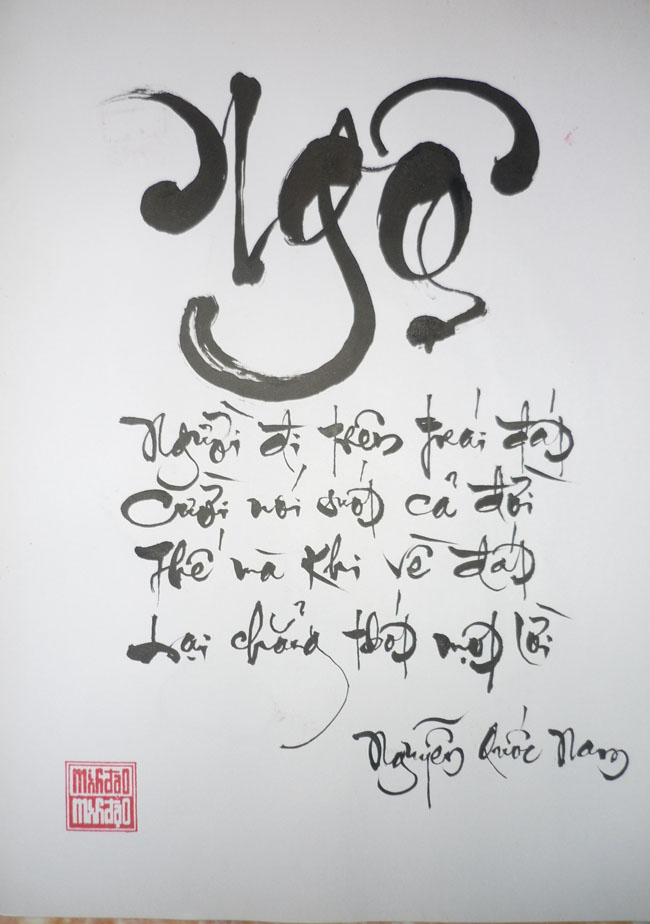 Ngộ
Người đi trên trái đất
Cười nói suốt cả đời
Thế mà khi về đất
Lại chẳng thốt một lời
Nguyễn Quốc Nam
minhđạo
minhđạo